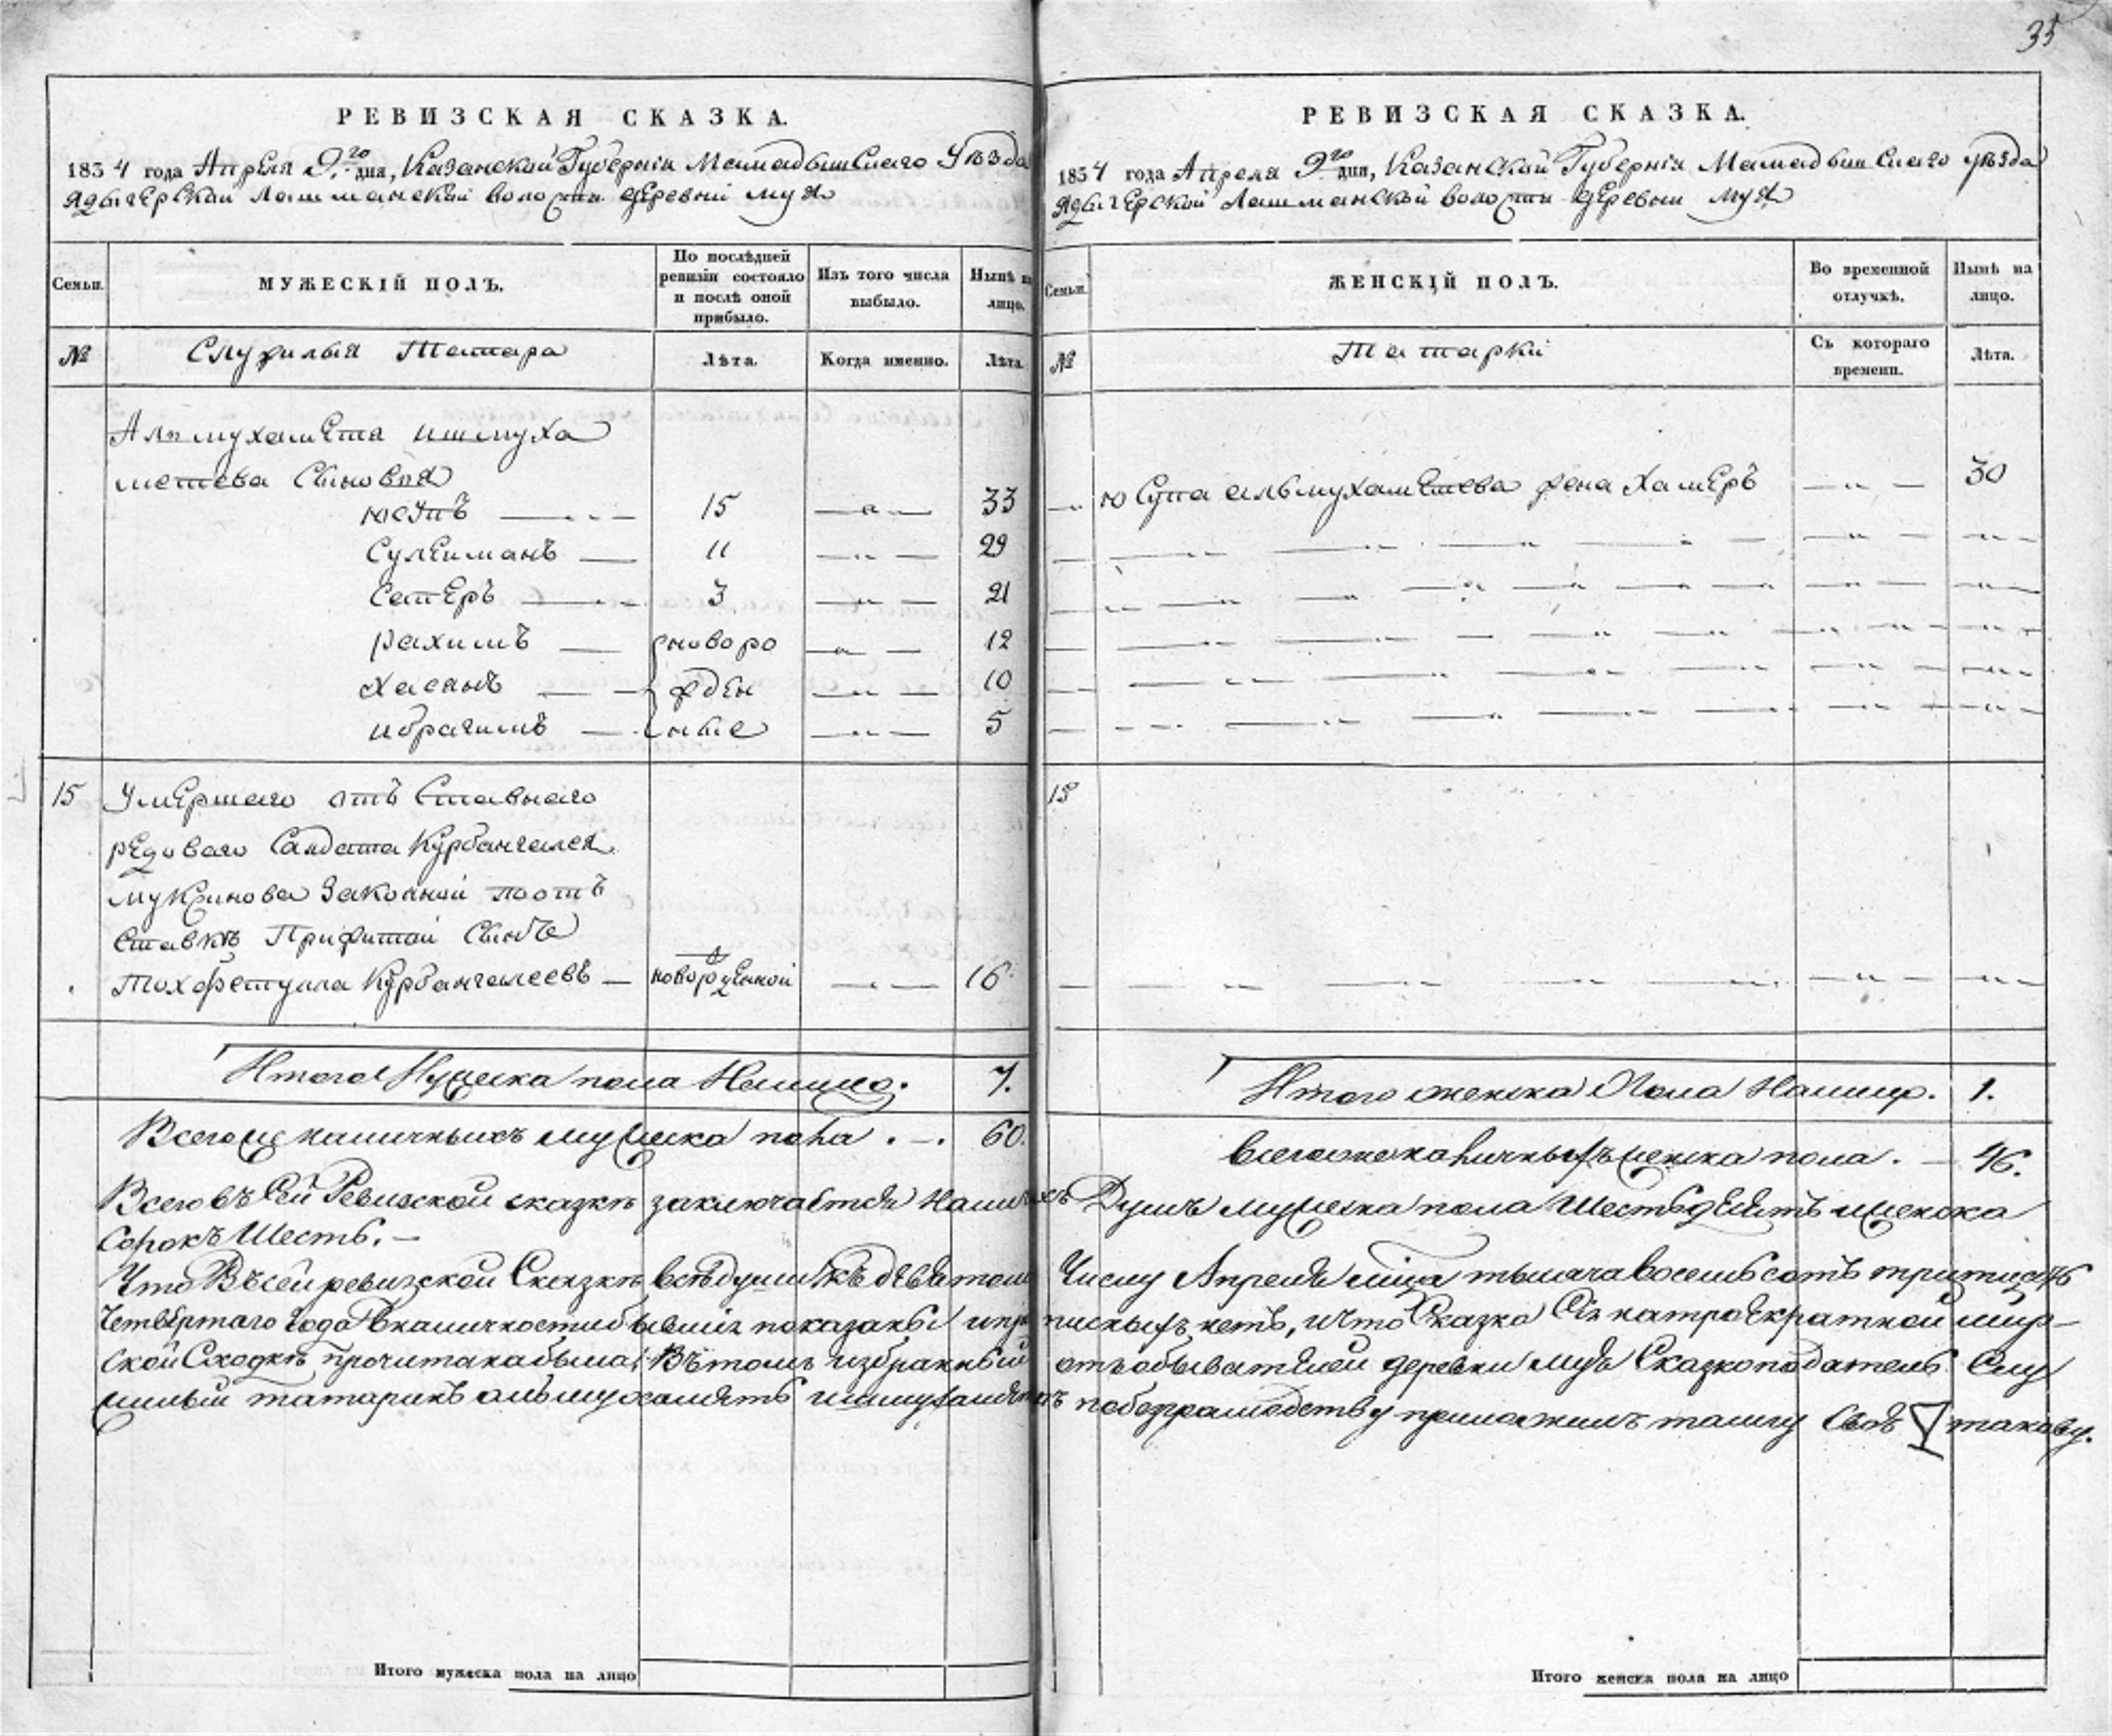 35
РЕВИЗСКАЯ СКАЗКА.
1834 года Апреля 9го дня, Казанской Губернїи Мамадышскаго уѣзда
Ядыгерской Лашманской волости деревни Муя
Семьи.
МУЖЕСКІЙ ПОЛЪ.
По послѣдней ревизіи состояло и послѣ оной прибыло.
Изъ того числа выбыло.
Нынѣ на лицо.
№
Служилыя Татара
Лѣта.
Когда именно.
Лѣта.
Альмухамета ишмуха
метева Сыновья
юсупъ 15 33
Сулеиманъ 11 29
Сатеръ 3 21
рахимъ новоро 12
Хасанъ жден 10
ибрагимъ ные 5
15 Умершаго отъ Ставнаго
редоваго Салдата Курбангалея
муксинова Законной пооть
ставкѣ Прижитой Сынъ
Тохфетулла Курбангалеевъ новорожденной 16
Итого Мужеска пола Налицо. 7.
Всего наличныхъ мужеска пола 60.
РЕВИЗСКАЯ СКАЗКА.
1834 года Апреля 9го дня, Казанской Губернїя Мамадышскаго уѣзда
Ядыгерской Лашманской волости деревни Муя
Семьи.
ЖЕНСКІЙ ПОЛЪ.
Во временной отлучкѣ.
Нынѣ на лицо.
№
Татарки
Съ котораго времени.
Лѣта.
юсупа альмухаметева жена Хамеръ 30
15
Итого женска Пола Налицо. 1.
Всего наличныхъ женска пола. 46.
Всего въ Сей Ревизской сказкѣ заключается Налицо Душъ мужеска пола Шестьдесятъ женска
Сорокъ Шесть.
Что Въ сей ревизской Сказкѣ всѣ души къ девятому Числу Апреля мца тысяча восемь сотъ тритцать
Четвертаго Года Вналичности бывшия показаны и прописныхъ нетъ, и что Сказка Сія на троекратной мир-
ской Сходкѣ прочитана была; Въ томъ избранный отъ обывателей деревни Муя Сказкоподатель Слу
жилый татаринъ альмухаметъ ишмухаметевъ по безграмотству приложилъ тамгу Свою такову.
Итого мужеска пола на лицо
Итого женска пола на лицо